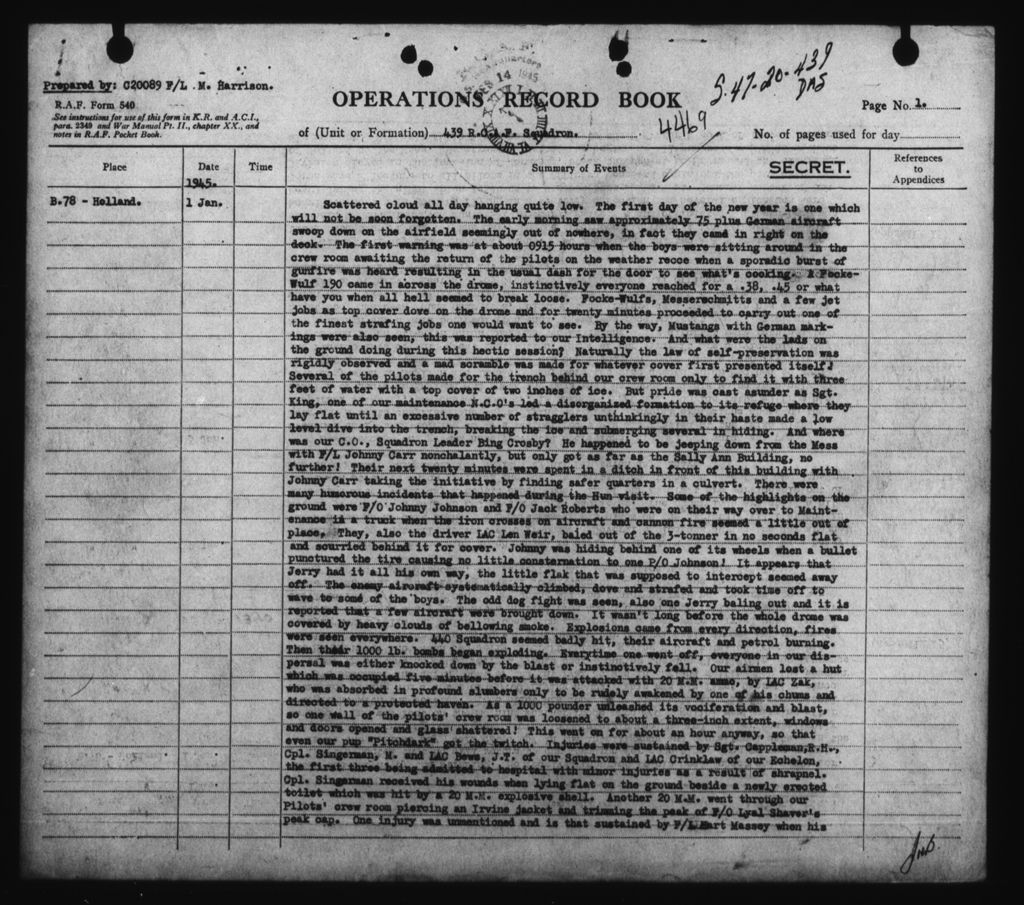 S.47-20-439
DMS
Prepared by: C20089 F/L .M. Harrison.
R.A.F. Form 540
See instructions for use of this form in K.R. and A.C.I.,
para. 2349 and War Manual Pt. II., chapter XX., and
notes in R.A.F. Pocket Book.
14 1945
OPERATIONS RECORD BOOK
4469
Page No. 1.
of (Unit or Formation) 439 R.C.A.F. Squadron.
No. of pages used for day
Place Date Time Summary of Events SECRET. References to Appendices
1945.
B.78 - Holland. 1 Jan. Scattered cloud all day hanging quite low. The first day of the new year is one which
will not be soon forgotten. The early morning saw approximately 75 plus German aircraft
swoop down on the airfield seemingly out of nowhere, in fact they came in right on the
deck. The first warning was at about 0915 hours when the boys were sitting around in the
crew room awaiting the return of the pilots on the weather recce when a sporadic burst of
gunfire was heard resulting in the usual dash for the door to see what's cooking. A Focke-
Wulf 190 came in across the drome, instinctively everyone reached for a .38, .45 or what
have you when all hell seemed to break loose. Focke-Wulfs, Messerschmitts and a few jet
jobs as top cover dove on the drome and for twenty minutes proceeded to carry out one of
the finest strafing jobs one would want to see. By the way, Mustangs with German mark-
ings were also seen, this was reported to our Intelligence. And what were the lads on
the ground doing during this hectic session? Naturally the law of self-preservation was
rigidly observed and a mad scramble was made for whatever cover first presented itself!
Several of the pilots made for the trench behind our crew room only to find it with three
feet of water with a top cover of two inches of ice. But pride was cast asunder as Sgt.
King, one of our maintenance N.C.O's led a disorganized formation to its refuge where they
lay flat until an excessive number of stragglers unthinkingly in their haste made a low
level dive into the trench, breaking the ice and submerging several in hiding. And where
was our C.O., Squadron Leader Bing Crosby? He happened to be jeeping down from the Mess
with F/L Johnny Carr nonchalantly, but only got as far as the Sally Ann Building, no
further! Their next twenty minutes were spent in a ditch in front of this building with
Johnny Carr taking the initiative by finding safer quarters in a culvert. There were
many humorous incidents that happened during the Hun visit. Some of the highlights on the
ground were F/O Johnny Johnson and F/O Jack Roberts who were on their way over to Maint-
enance in a truck when the iron crosses on aircraft and cannon fire seemed a little out of
place. They, also the driver LAC Len Weir, baled out of the 3-tonner in no seconds flat
and scurried behind it for cover. Johnny was hiding behind one of its wheels when a bullet
punctured the tire causing no little consternation to one P/O Johnson! It appears that
Jerry had it all his own way, the little flak that was supposed to intercept seemed away
off. The enemy aircraft systematically climbed, dove and strafed and took time off to
wave to some of the boys. The odd dog fight was seen, also one Jerry baling out and it is
reported that a few aircraft were brought down. It wasn't long before the whole drome was
covered by heavy clouds of bellowing smoke. Explosions came from every direction, fires
were seen everywhere. 440 Squadron seemed badly hit, their aircraft and petrol burning.
Then their 1000 lb. bombs began exploding. Everytime one went off, everyone in our dis-
persal was either knocked down by the blast or instinctively fell. Our airmen lost a hut
which was occupied five minutes before it was attacked with 20 M.M. ammo, by LAC Zak,
who was absorbed in profound slumbers only to be rudely awakened by one of his chums and
directed to a protected haven. As a 1000 pounder unleashed its vociferation and blast,
so one wall of the pilots' crew room was loosened to about a three-inch extent, windows
and doors opened and glass shattered! This went on for about an hour anyway, so that
even our pup "Pitchdark" got the twitch. Injuries were sustained by Sgt. Cappleman,R.H.,
Cpl. Singerman, M. and LAC Bews, J.T. of our Squadron and LAC Crinklaw of our Echelon,
the first three being admitted to hospital with minor injuries as a result of shrapnel.
Cpl. Singerman received his wounds when lying flat on the ground beside a newly erected
toilet which was hit by a 20 M.M. explosive shell. Another 20 M.M. went through our
Pilots' crew room piercing an Irvine jacket and trimming the peak of F/O Lyal Shaver's
peak cap. One injury was unmentioned and is that sustained by F/L Hart Massey when his